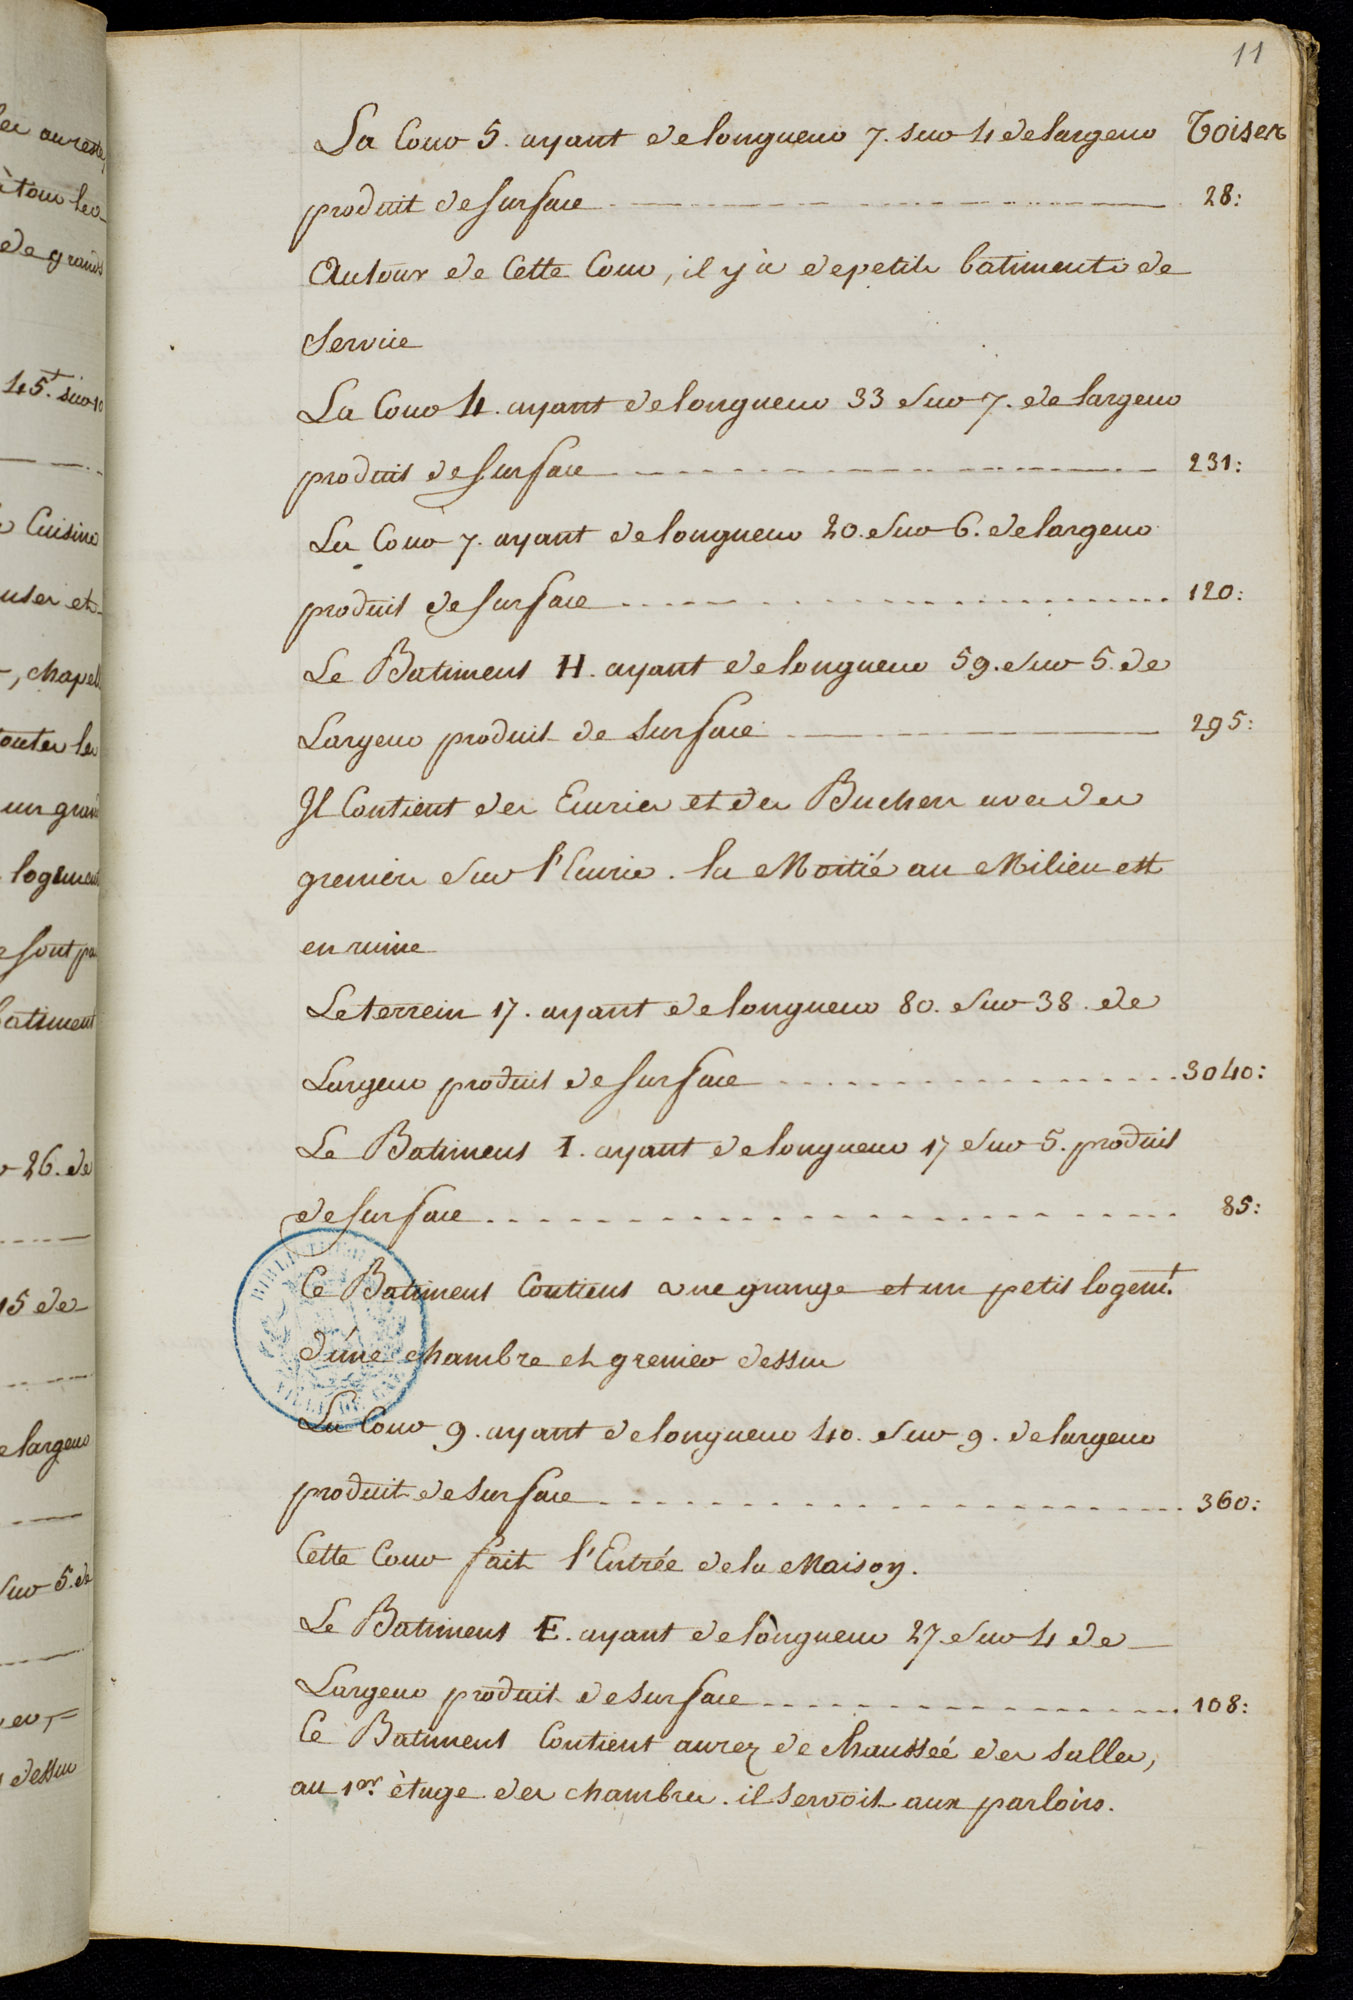 11
La Cour 5. ayant de longueur 7. sur 4 de largeur Toises
produit de surface 28:
Autour de Cette Cour, il y à de petits batiments de
Service
La Cour 4. ayant de longueur 33 sur 7. de largeur
produit de surface 231:
La Cour 7. ayant de longueur 20. sur 6. de largeur
produit de surface 120:
Le Batiment H. ayant de longueur 59. sur 5. de
Largeur produit de surface 295:
Il Contient des Ecuries et des Buchers avec des
greniers sur l'Ecurie. la Moitié au Milieu est
en ruine
Le terrein 17. ayant de longueur 80. sur 38. de
Largeur produit de surface 3040:
Le Batiment I. ayant de longueur 17 sur 5. produit
de surface 85:
Ce Batiment Contient une grange et un petit logemt.
d'une chambre et grenier dessus
La Cour 9. ayant de longueur 40. sur 9. de largeur
produit de surface 360:
Cette Cour fait l'Entrée de la Maison.
Le Batiment E. ayant de longueur 27. sur 4 de
Largeur produit de surface 108:
Ce Batiment Contient au rez de chaussée des salles,
au 1er. ètage des chambres. il servoit aux parloirs.